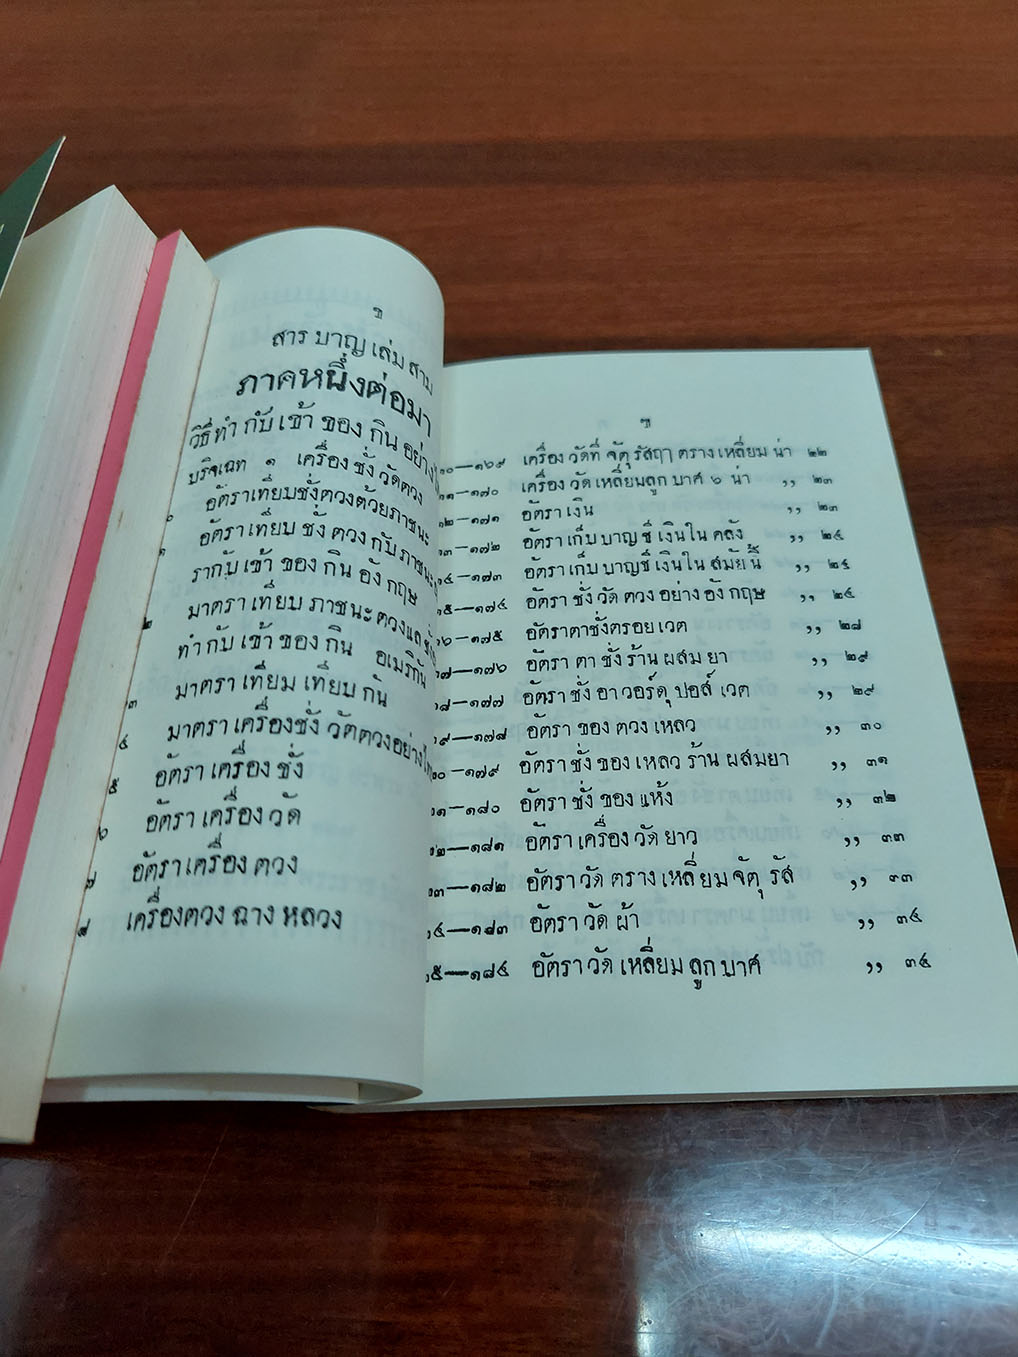 ข
สาร บาญ เล่ม สาม
ภาคหนึ่งต่อมา
วิธี ทำ กับ เข้า ของ กิน อย่าง
บริจเฉท ๑ เครื่อง ชั่ง วัดตวง
อัตราเทียบชั่งตวงด้วยภาชนะ
๐ อัตราเทียบ ชั่ง ตวง กับ ภาชนะ
๑ รากับ เข้า ของ กิน อังกฤษ
๒ มาตรา เทียบ ภาชนะ ตวงแลชั่ง
ทำ กับ เข้า ของ กิน อเมริกัน
๓ มาตรา เทียม เทียบ กัน
๔ มาตรา เครื่องชั่ง วัดตวงอย่างไทย
๕ อัตรา เครื่อง ชั่ง
๖ อัตรา เครื่อง วัด
๗ อัตราเครื่อง ตวง
๘ เครื่องตวง ฉาง หลวง
ฃ
๑๐—๑๖๙ เครื่อง วัดที่ จัตุ รัสฤๅ ตราง เหลี่ยม น่า ๒๒
๑๑—๑๗๐ เครื่อง วัด เหลี่ยมลูก บาศ ๖ น่า ,, ๒๓
๑๒—๑๗๑ อัตรา เงิน ,, ๒๓
๑๓—๑๗๒ อัตรา เก็บ บาญ ชี เงินใน คลัง ,, ๒๔
๑๔—๑๗๓ อัตรา เก็บ บาญชี เงินใน สมัย นี้ ,, ๒๔
๑๕—๑๗๔ อัตรา ชั่ง วัด ตวง อย่าง อังกฤษ ,, ๒๔
๑๖—๑๗๕ อัตราตาชั่งตรอย เวต ,, ๒๘
๑๗—๑๗๖ อัตรา ตา ชั่ง ร้าน ผสม ยา ,, ๒๙
๑๘—๑๗๗ อัตรา ชั่ง อา วอร์ดุ ปอส์ เวต ,, ๒๙
๑๙—๑๗๘ อัตรา ของ ตวง เหลว ,, ๓๐
๒๐—๑๗๙ อัตรา ชั่ง ของ เหลว ร้าน ผสมยา ,, ๓๑
๒๑—๑๘๐ อัตรา ชั่ง ของ แห้ง ,, ๓๒
๒๒—๑๘๑ อัตรา เครื่อง วัด ยาว ,, ๓๓
๒๓—๑๘๒ อัตรา วัด ตราง เหลี่ยม จัตุ รัส ,, ๓๓
๒๔—๑๘๓ อัตรา วัด ผ้า ,, ๓๔
๒๕—๑๘๔ อัตรา วัด เหลี่ยม ลูก บาศ ,, ๓๔